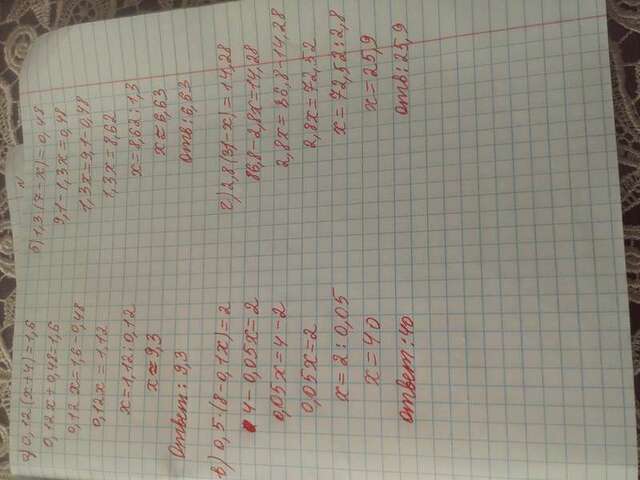 а) 0,12(x+4)=1,6
0,12x+0,48=1,6
0,12x=1,6-0,48
0,12x=1,12
x=1,12:0,12
x≈9,3
Ответ: 9,3
б) 1,3(7-x)=0,48
9,1-1,3x=0,48
1,3x=9,1-0,48
1,3x=8,62
x=8,62:1,3
x≈6,63
отв: 6,63
в) 0,5·(8-0,1x)=2
4-0,05x=2
0,05x=4-2
0,05x=2
x=2:0,05
x=40
ответ: 40
г) 2,8(31-x)=14,28
86,8-2,8x=14,28
2,8x=86,8-14,28
2,8x=72,52
x=72,52:2,8
x=25,9
отв: 25,9